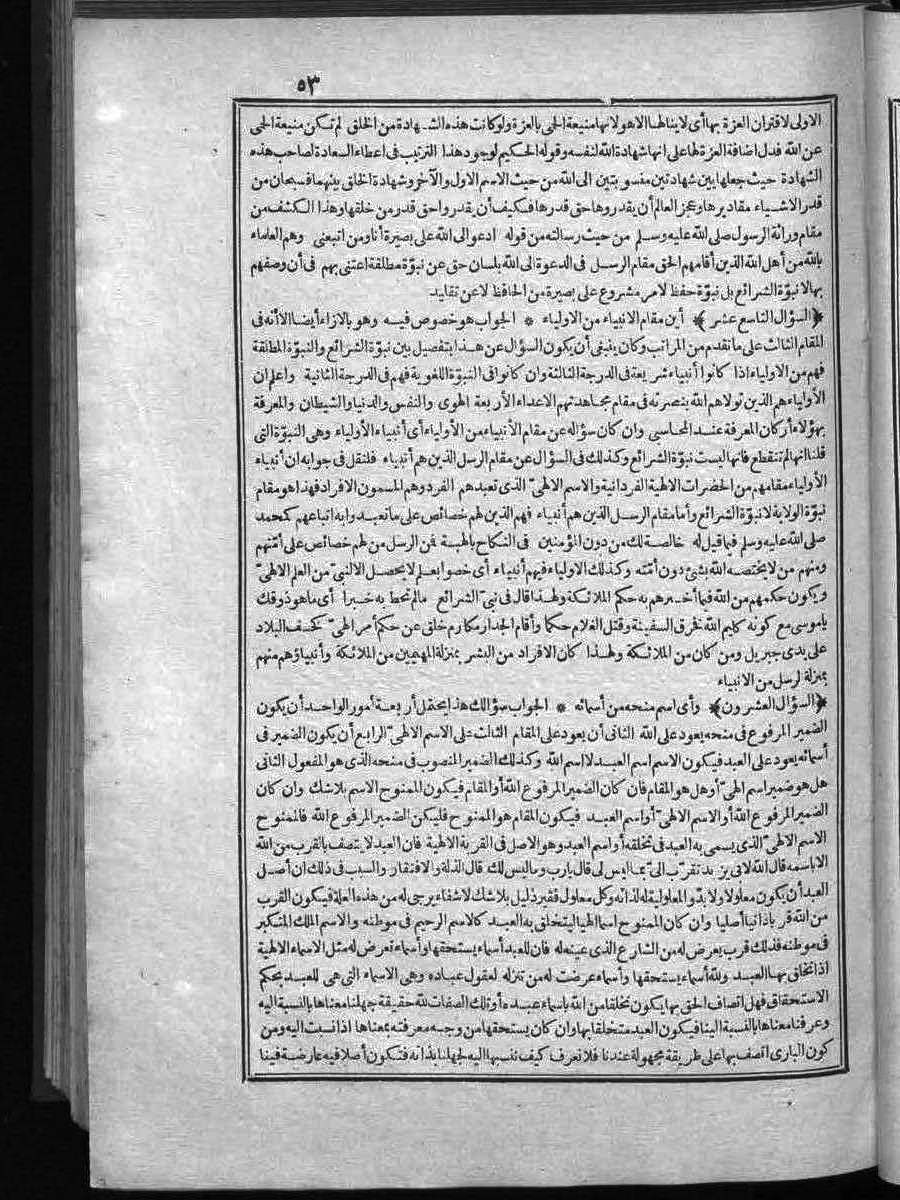 ٥٣
الاولى لاقتران العزة بها أى لا ينالها الا هو لانها منيعة الحمى بالعزة ولو كانت هذه الشهادة من الخلق لم تكن منيعة الحمى
عن الله فدل اضافة العزة لها على انها شهادة الله لنفسه وقوله الحكيم لوجود هذا الترتيب فى اعطاء السعادة لصاحب هذه
الشهادة حيث جعلها بين شهادتين منسوبتين الى الله من حيث الاسم الاول والآخر وشهادة الخلق بينهما فسبحان من
قدر الاشياء مقاديرها وعجز العالم أن يقدروها حق قدرها فكيف أن يقدروا حق قدر من خلقها وهذا الكشف من
مقام وراثة الرسول صلى الله عليه وسلم من حيث رسالته من قوله ادعو الى الله على بصيرة أنا ومن اتبعنى وهم العلماء
بالله من أهل الله الذين أقامهم الحق مقام الرسل فى الدعوة الى الله بلسان حق عن نبوّة مطلقة اعتنى بهم فى أن وصفهم
بها لا نبوّة الشرائع بل نبوّة حفظ لامر مشروع على بصيرة من الحافظ لا عن تقليد
﴿السؤال التاسع عشر﴾ أين مقام الانبياء من الاولياء * الجواب هو خصوص فيه وهو بالازاء أيضا الا انه فى
المقام الثالث على ما تقدم من المراتب وكان ينبغى أن يكون السؤال عن هذا بتفصيل بين نبوّة الشرائع والنبوّة المطلقة
فهم من الاولياء اذا كانوا أنبياء شريعة فى الدرجة الثالثة وان كانوا فى النبوّة اللغوية فهم فى الدرجة الثانية واعلم ان
الأولياء هم الذين تولاهم الله بنصرته فى مقام مجاهدتهم الاعداء الأربعة الهوى والنفس والدنيا والشيطان والمعرفة
بهؤلاء أركان المعرفة عند المحاسبى وان كان سؤاله عن مقام الأنبياء من الأولياء أى أنبياء الأولياء وهى النبوّة التى
قلنا انها لم تنقطع فانها ليست نبوّة الشرائع وكذلك فى السؤال عن مقام الرسل الذين هم أنبياء فلنقل فى جوابه ان أنبياء
الأولياء مقامهم من الحضرات الالهية الفردانية والاسم الالهىّ الذى تعبدهم الفرد وهم المسمون الافراد فهذا هو مقام
نبوّة الولاية لا نبوّة الشرائع وأما مقام الرسل الذين هم أنبياء فهم الذين لهم خصائص على ما تعبدوا به اتباعهم كمحمد
صلى الله عليه وسلم فيما قيل له خالصة لك من دون المؤمنين فى النكاح بالهبة فمن الرسل من لهم خصائص على أمّتهم
ومنهم من لا يختصه الله بشئ دون أمّته وكذلك الاولياء فيهم أنبياء أى خصوا بعلم لا يحصل الا لنبىّ من العلم الالهىّ
ويكون حكمهم من الله فيما أخبرهم به حكم الملائكة ولهذا قال فى نبىّ الشرائع ما لم تحط به خبرا أى ما هو ذوقك
يا موسى مع كونه كليم الله فخرق السفينة وقتل الغلام حكما وأقام الجدار مكارم خلق عن حكم أمر الهىّ كخسف البلاد
على يدى جبريل ومن كان من الملائكة ولهذا كان الافراد من البشر بمنزلة المهيمين من الملائكة وأنبياؤهم منهم
بمنزلة لرسل من الانبياء
﴿السؤال العشرون﴾ وأى اسم منحه من أسمائه * الجواب سؤالك هذا يحتمل أربعة أمور الواحد أن يكون
الضمير المرفوع فى منحه يعود على الله الثانى أن يعود على المقام الثالث على الاسم الالهىّ الرابع أن يكون الضمير فى
أسمائه يعود على العبد فيكون الاسم اسم العبد لا اسم الله وكذلك الضمير المنصوب فى منحه الذى هو المفعول الثانى
هل هو ضمير اسم الهىّ أو هل هو المقام فان كان الضمير المرفوع الله أو المقام فيكون الممنوح الاسم بلا شك وان كان
الضمير المرفوع الله أو الاسم الالهىّ أو اسم العبد فيكون المقام هو الممنوح فليكن الضمير المرفوع الله فالممنوح
الاسم الالهىّ الذى يسمى به العبد فى تخلقه أو اسم العبد وهو الاصل فى القربة الالهية فان العبد لا يتصف بالقرب من الله
الا باسمه قال الله لابى يزيد تقرّب الىّ بما ليس لى قال يا رب وما ليس لك قال الذلة والافتقار والسبب فى ذلك ان أصل
العبد أن يكون معلولا ولا بدّ والمعلولية له لذاته وكل معلول فقير ذليل بلا شك لا شفاء يرجى له من هذه العلة فيكون القرب
من الله قربا ذاتيا أصليا وان كان الممنوح اسما الهيا ليتخلق به العبد كالاسم الرحيم فى موطنه والاسم الملك المتكبر
فى موطنه فذلك قرب يعرض له من الشارع الذى عينه له فان للعبد أسماء يستحقها وأسماء تعرض له مثل الاسماء الالهية
اذا تخلق بها العبد ولله أسماء يستحقها وأسماء عرضت له من تنزله لعقول عباده وهى الاسماء التى هى للعبد بحكم
الاستحقاق فهل اتصاف الحق بها يكون تخلقا من الله باسماء عبده أو تلك الصفات لله حقيقة جهلنا معناها بالنسبة اليه
وعرفنا معناها بالنسبة الينا فيكون العبد متخلقا بها وان كان يستحقها من وجه معرفته بمعناها اذا نسبت اليه ومن
كون البارى اتصف بها على طريقة مجهولة عندنا فلا نعرف كيف ننسبها اليه لجهلنا بذاته فتكون أصلا فيه عارضة فينا